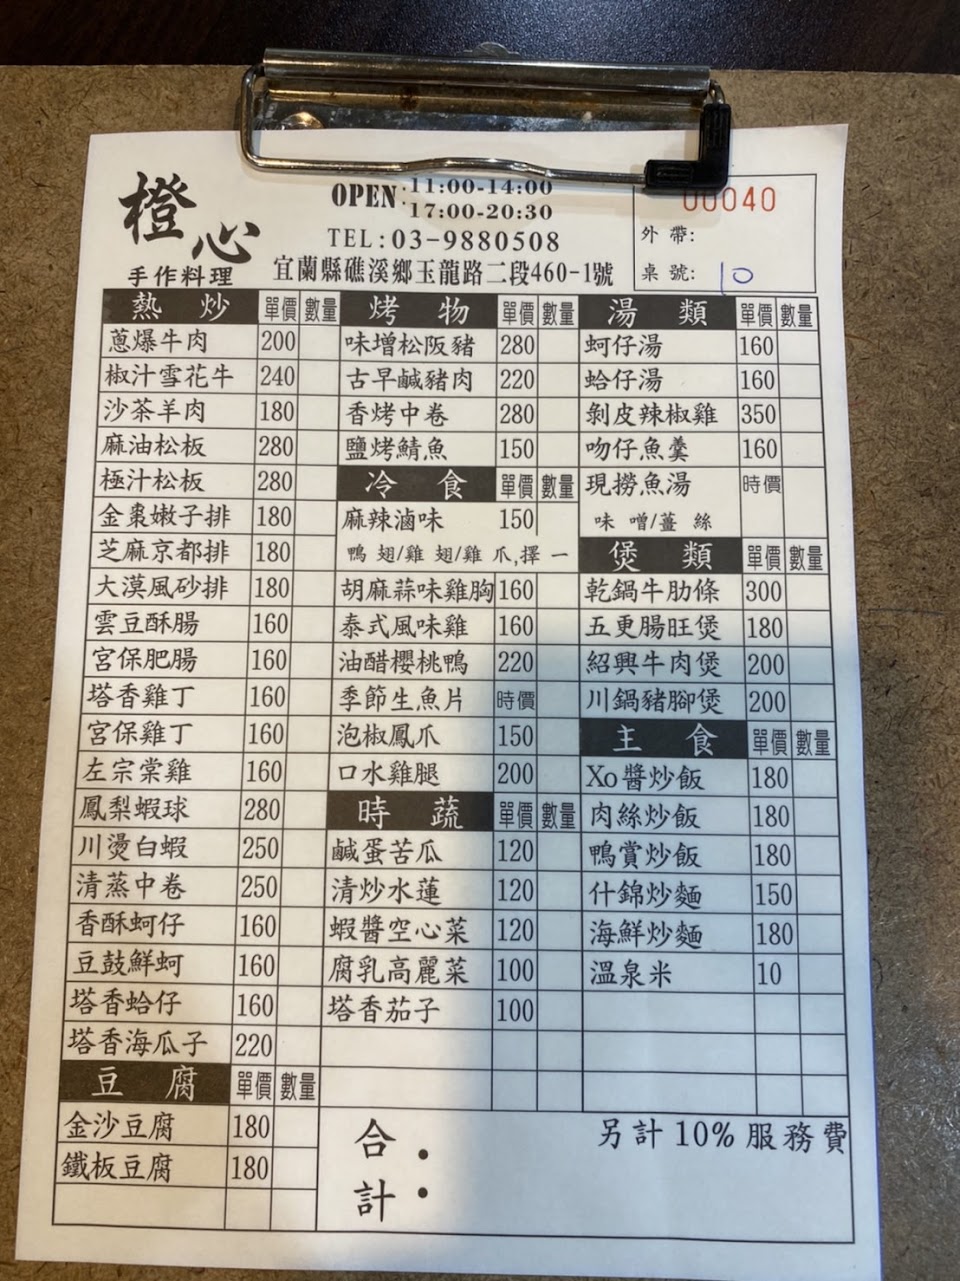 橙心
手作料理
OPEN:11:00-14:00
17:00-20:30
TEL:03-9880508
宜蘭縣礁溪鄉玉龍路二段460-1號
00040
外帶:
桌號: 10
熱炒 單價 數量
蔥爆牛肉 200
椒汁雪花牛 240
沙茶羊肉 180
麻油松板 280
極汁松板 280
金棗嫩子排 180
芝麻京都排 180
大漠風砂排 180
雲豆酥腸 160
宮保肥腸 160
塔香雞丁 160
宮保雞丁 160
左宗棠雞 160
鳳梨蝦球 280
川燙白蝦 250
清蒸中卷 250
香酥蚵仔 160
豆鼓鮮蚵 160
塔香蛤仔 160
塔香海瓜子 220
豆腐 單價 數量
金沙豆腐 180
鐵板豆腐 180
烤物 單價 數量
味增松阪豬 280
古早鹹豬肉 220
香烤中卷 280
鹽烤鯖魚 150
冷食 單價 數量
麻辣滷味 150
鴨翅/雞翅/雞爪,擇一
胡麻蒜味雞胸 160
泰式風味雞 160
油醋櫻桃鴨 220
季節生魚片 時價
泡椒鳳爪 150
口水雞腿 200
時蔬 單價 數量
鹹蛋苦瓜 120
清炒水蓮 120
蝦醬空心菜 120
腐乳高麗菜 100
塔香茄子 100
湯類 單價 數量
蚵仔湯 160
蛤仔湯 160
剝皮辣椒雞 350
吻仔魚羹 160
現撈魚湯 時價
味噌/薑絲
煲類 單價 數量
乾鍋牛肋條 300
五更腸旺煲 180
紹興牛肉煲 200
川鍋豬腳煲 200
主食 單價 數量
Xo醬炒飯 180
肉絲炒飯 180
鴨賞炒飯 180
什錦炒麵 150
海鮮炒麵 180
溫泉米 10
合計:
另計10%服務費